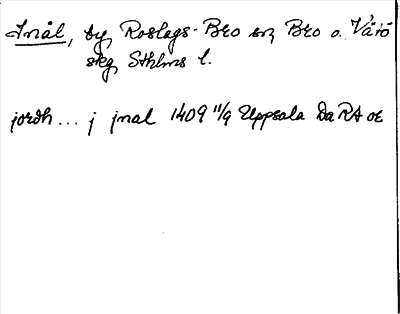 Inål, by, Roslags-Bro sn, Bro o. Vätö
skg, Sthlms l.
jordh... j jnal 1409 11/9 Uppsala Da RA or